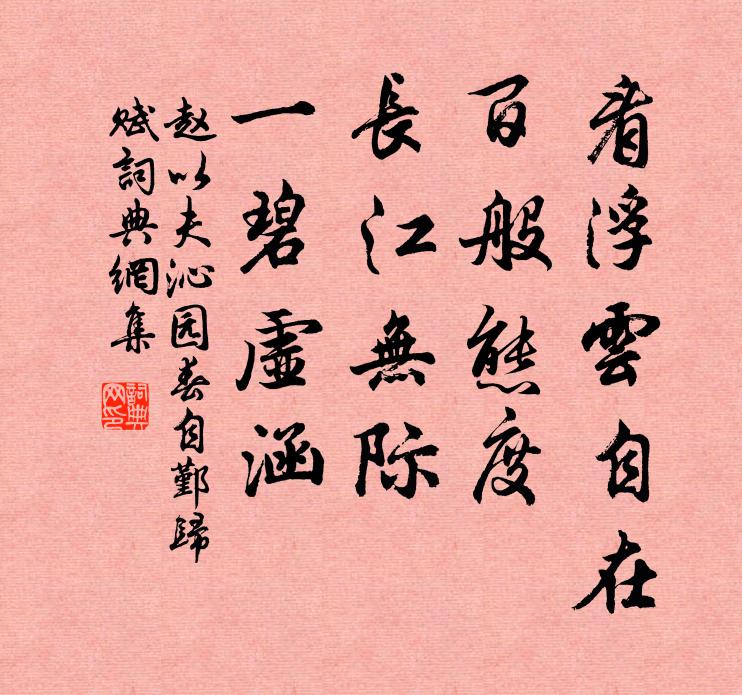 看浮雲自在
百般態度
長江無际
一碧虛涵
赵以夫沁园春自鄞歸
赋詞典網集
詞典网印